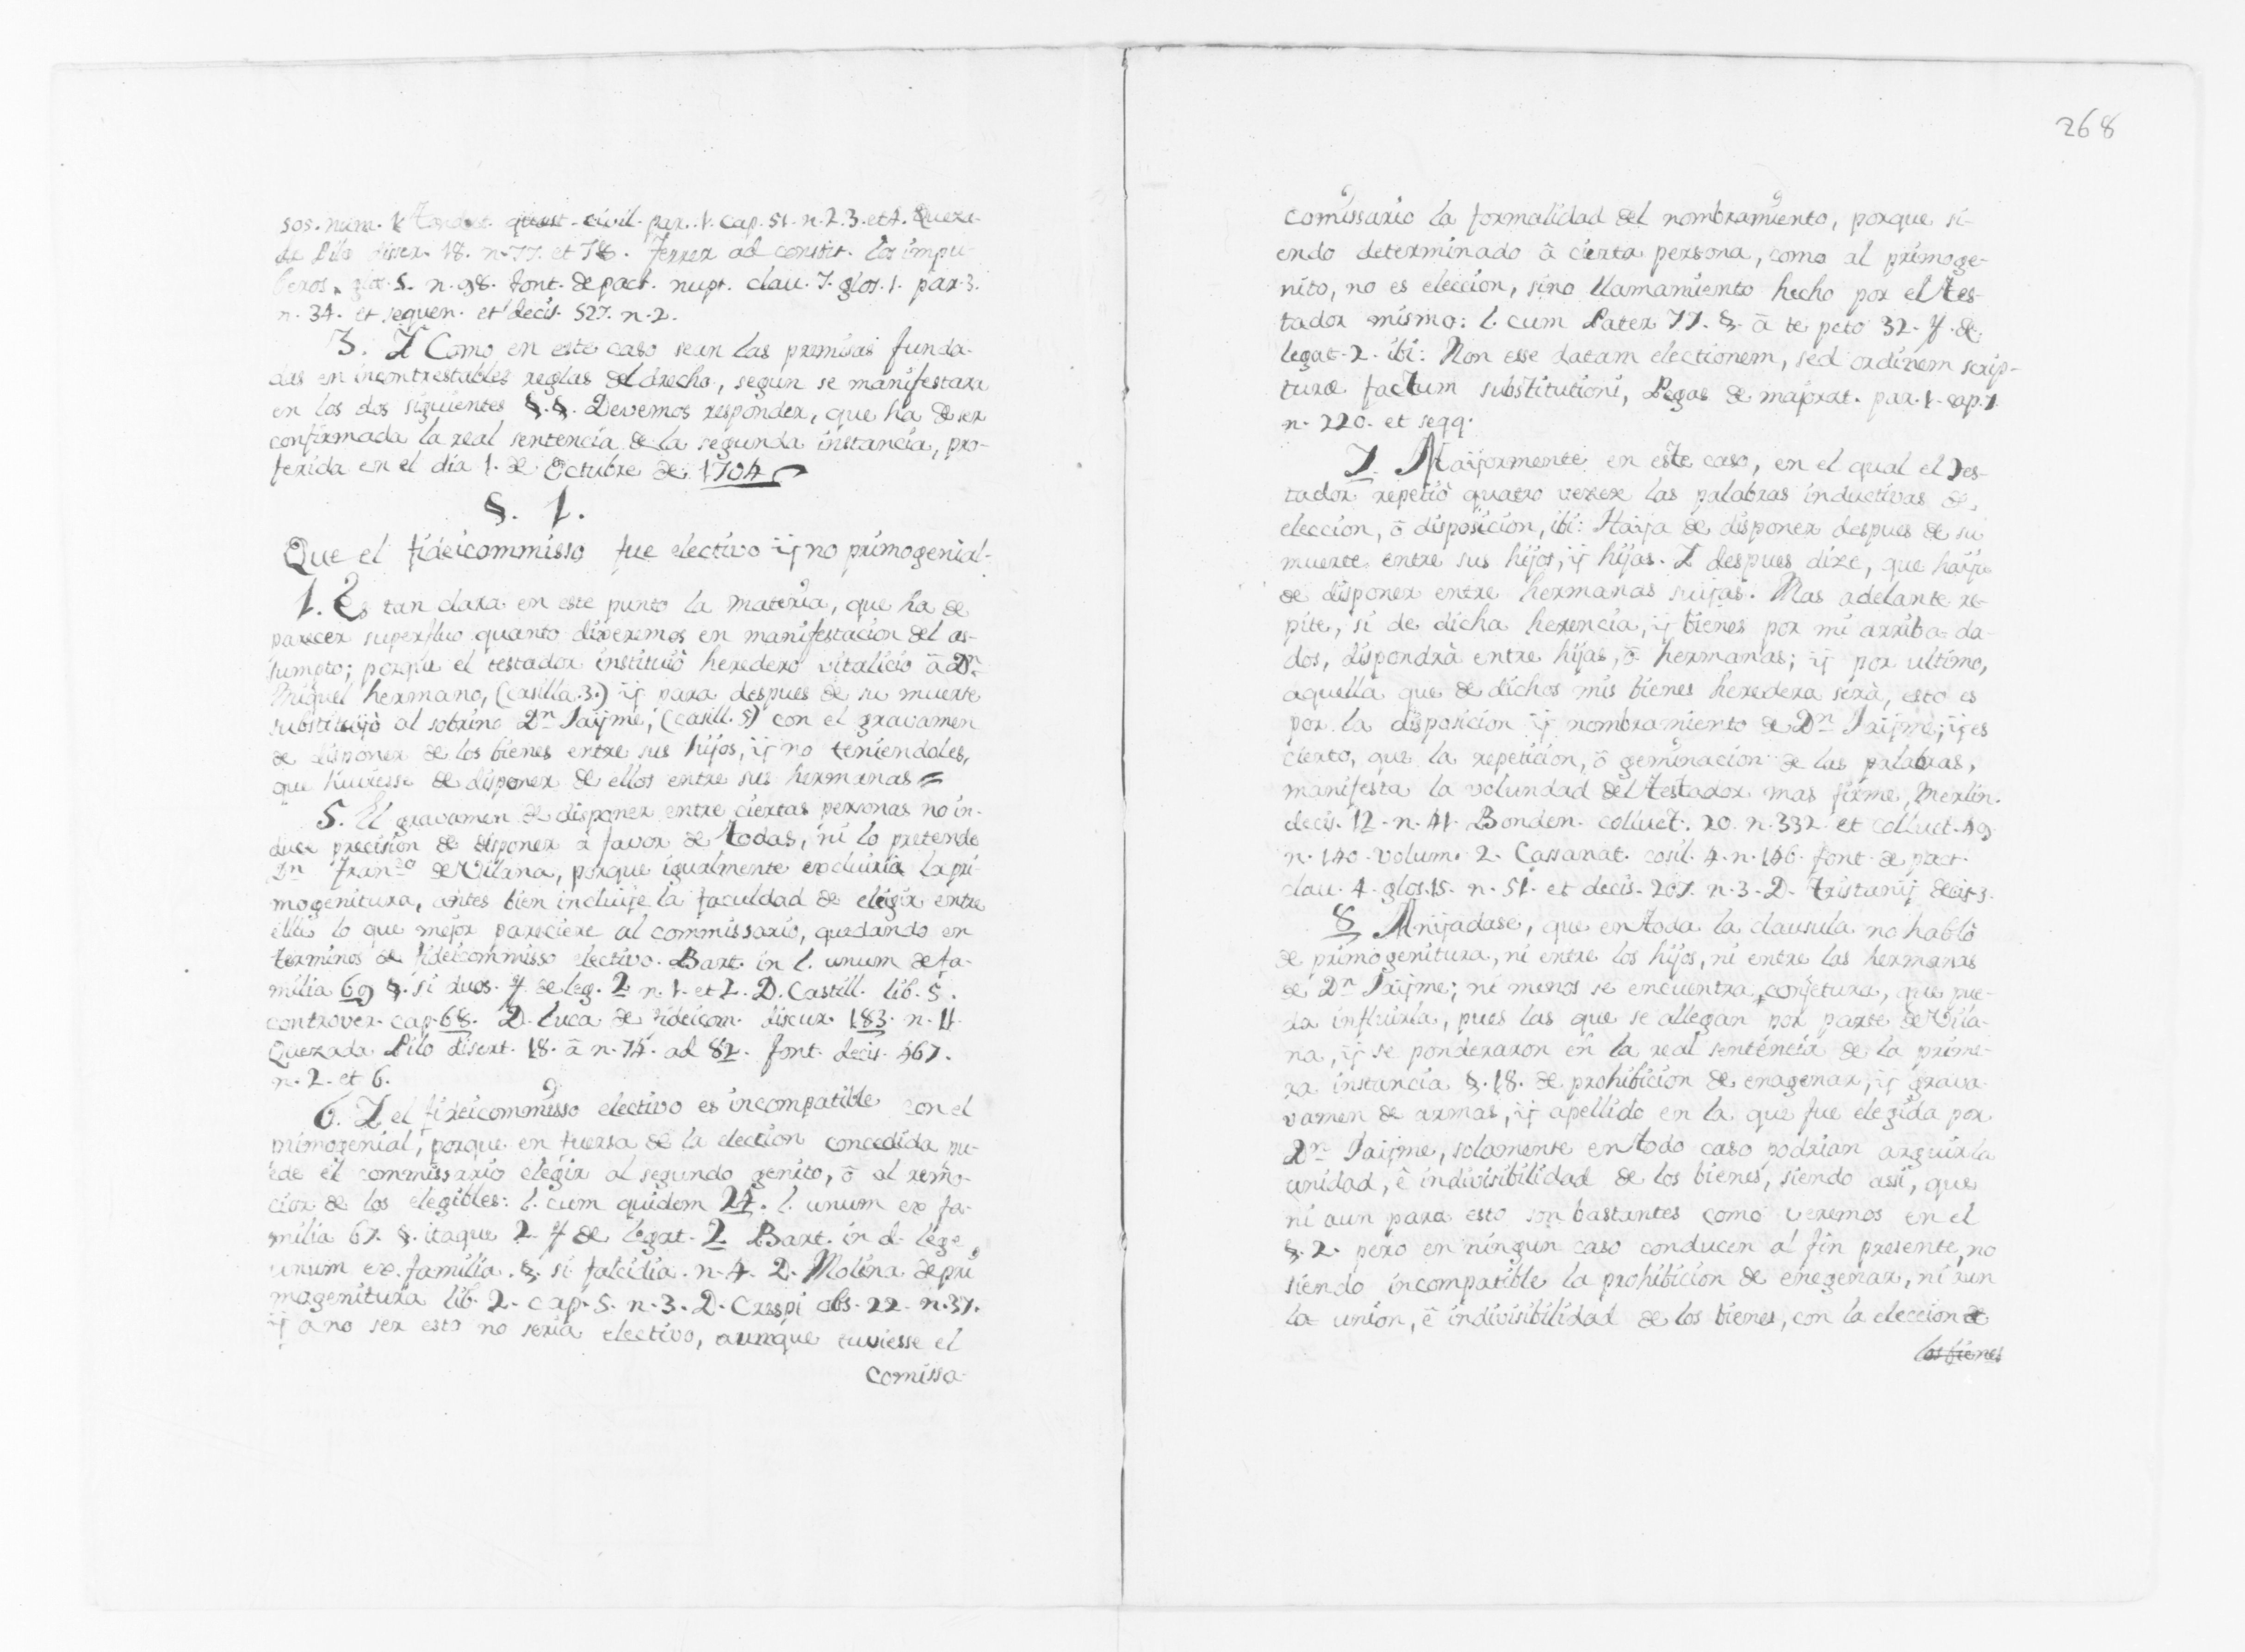 sos. num. 1. Tondut. quest. civil. par. 1. cap. 51. n. 2. 3. et 4. Quera-
da Pilo discer. 18. n. 77. et 78. Ferrer ad constit. los impu-
beros, glos. 5. n. 98. font. de pact. nupt. clau. 7. glos. 1. par. 3.
n. 34. et sequen. et decis. 527. n. 2.
3. Y Como en este caso sean las premisas funda-
das en incontrestables reglas del drecho, segun se manifestara
en los dos siguientes §.§. Devemos responder, que ha de ser
confirmada la real sentencia de la segunda instancia, pro-
ferida en el dia 1. de Octubre de 1704
§. 1.
Que el fideicommisso fue electivo ij no primogenial.
1. Es tan clara en este punto la materia, que ha de
parecer superfluo quanto dixeremos en manifestacion del as-
sumpto; porque el testador instituiò heredero vitalicio â Dn.
Miquel hermano, (casilla. 3.) ij para despues de su muerte
substituijò al sobrino Dn Jaijme, (casill. 5) con el gravamen
de disponer de los bienes entre sus hijos, ij no teniendoles,
que huviesse de disponer de ellos entre sus hermanas
5. El gravamen de disponer entre ciertas personas no in-
duce precision de disponer a favor de todas, ni lo pretende
Dn Franco de Vilana, porque igualmente excluiria la pri-
mogenitura, antes bien incluije la facultad de elegir entre
ellos lo que mejor pareciere al commissario, quedando en
terminos de fideicommisso electivo. Bart. in l. unum de fa-
milia 69 §. si duos. ff. de leg. 2 n. 1. et 2. D. Castill. lib. 5.
controver. cap. 68. D. Luca de fideicom. discur. 183. n. 11.
Querada Pilo disert. 18. â n. 74. ad 82. font. decis. 467.
n. 2. et 6.
6. Y el fideicommisso electivo es incompatible con el
primogenial, porque en fuersa de la election concedida pu-
ede el commissario elegir al segundo genito, ô al remo-
cior de los elegibles: l. cum quidem 24. l. unum ex fa-
milia 67. §. itaque 2. ff de legat. 2 Bart. in d. lege
unum ex. familia. §. si falcidia. n. 4. D. Molina de pri
mogenitura lib. 2. cap. 5. n. 3. D. Crespi obs. 22. n. 37.
ij a no ser esto no seria electivo, aunque tuviesse el
comissa-
268
comissario la formalidad del nombramiento, porque si-
endo determinado â cierta persona, como al primoge-
nito, no es eleccion, sino llamamiento hecho por el Tes-
tador mismo: l. cum Pater 77. §. â te peto 32. ff. de
legat. 2. ibi: Non esse datam electionem, sed ordinem scrip-
turæ factum substitutioni, Pegas de majorat. par. 1. cap. 1
n. 220. et seqq.
7. Maijormente en este caso, en el qual el Tes-
tador repetiò quatro vezex las palabras inductivas de
eleccion, ô disposicion, ibi: Haija de disponer despues de su
muerte entre sus hijos, ij hijas. Y despues dize, que haija
de disponer entre hermanas suijas. Mas adelante re-
pite, si de dicha herencia, ij bienes por mi arriba da-
dos, dispondrà entre hijas, ô hermanas; ij por ultimo,
aquella que de dichos mis bienes heredera serà, esto es
por la disposicion ij nombramiento de Dn Jaijme; ij es
cierto, que la repeticion, ô geminacion de las palabras,
manifesta la volundad del Testador mas firme, Merlin.
decis. 12. n. 41. Bonden. colluct. 20. n. 332. et colluct. 49
n. 140. volum. 2. Cassanat. cosil. 4. n. 146. font. de pact.
clau. 4. glos. 15. n. 51. et decis. 207. n. 3. D. Tristanij decis 3.
8 Anijadase, que en toda la clausula no hablò
de primogenitura, ni entre los hijos, ni entre las hermanas
de Dn Jaijme; ni menos se encuentra conjetura, que pue-
da influirla, pues las que se allegan por parte de Vila-
na, ij se ponderaron en la real sentencia de la prime-
ra instancia §. 18. de prohibicion de enagenar, ij grava-
vamen de armas, ij apellido en la que fue elegida por
Dn Jaijme, solamente en todo caso podrian arguirla
unidad, ê indivisibilidad de los bienes, siendo assi, que
ni aun para esto son bastantes como veremos en el
§. 2. pero en ningun caso conducen al fin presente, no
siendo incompatible la prohibicion de enegenar, ni aun
la union, ê indivisibilidad de los bienes, con la eleccion de
los bienes